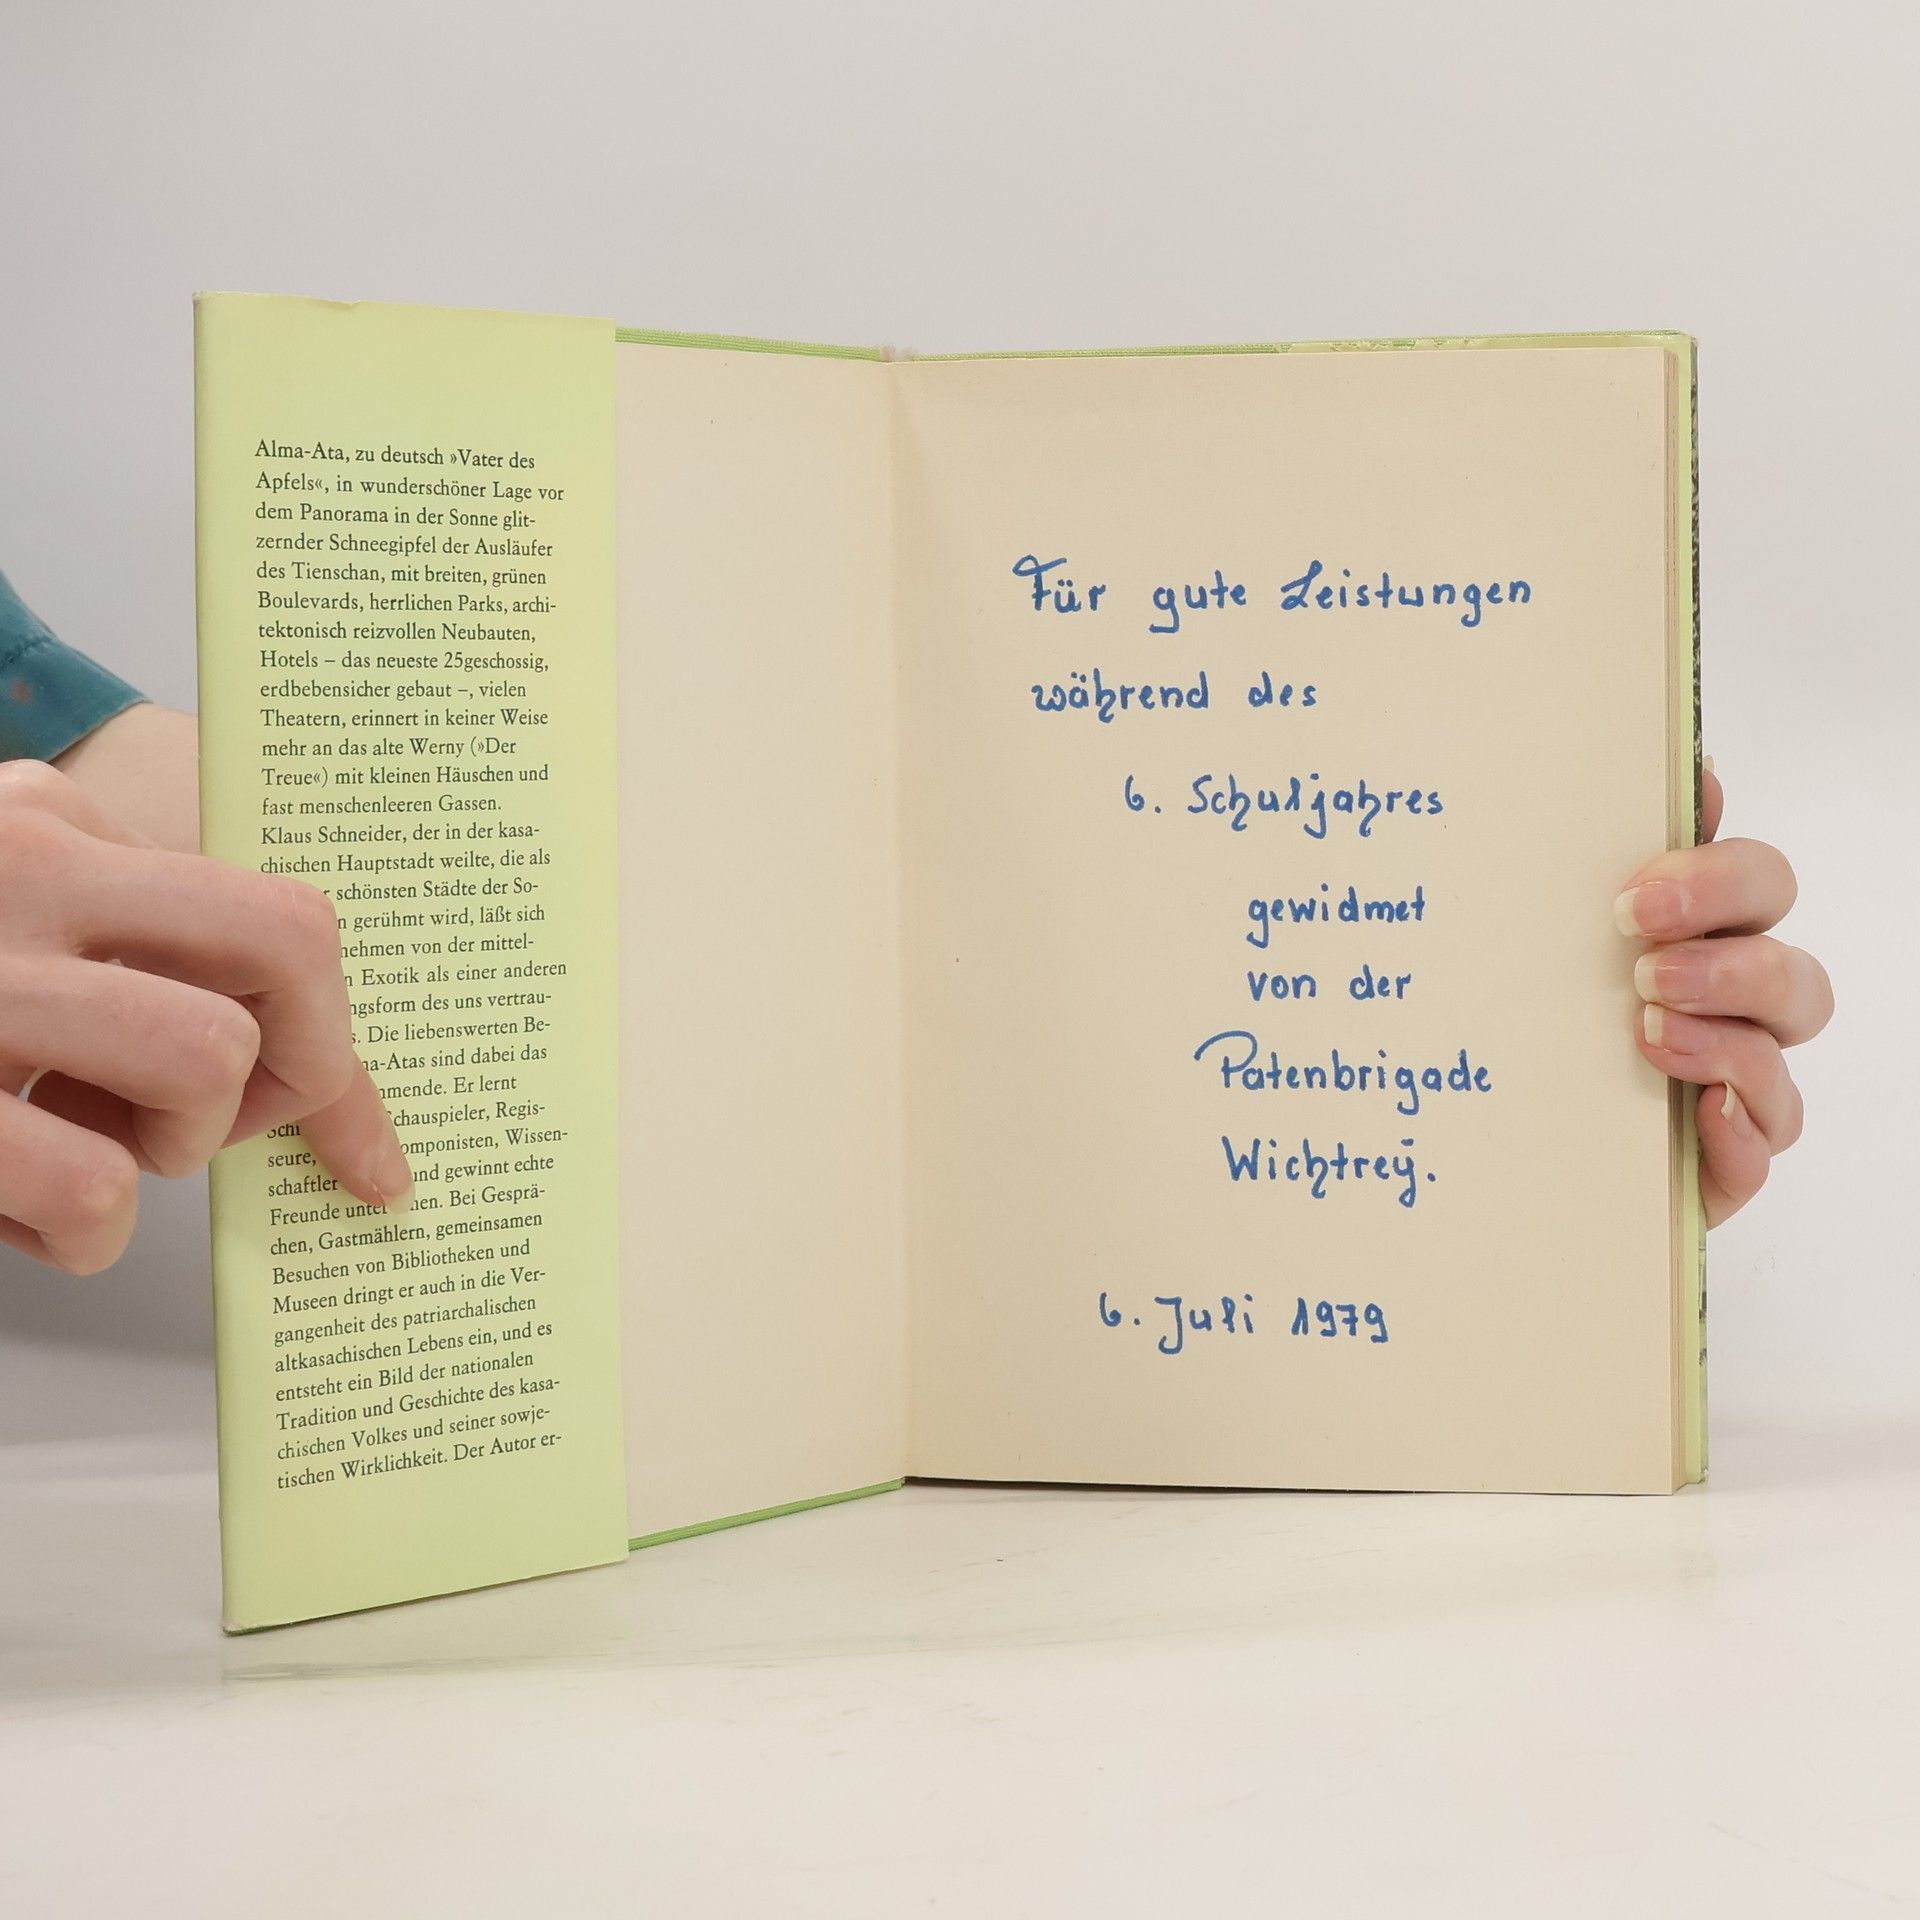 Alma-Ata, zu deutsch »Vater des
Apfels«, in wunderschöner Lage vor
dem Panorama in der Sonne glit-
zernder Schneegipfel der Ausläufer
des Tienschan, mit breiten, grünen
Boulevards, herrlichen Parks, archi-
tektonisch reizvollen Neubauten,
Hotels – das neueste 25geschossig,
erdbebensicher gebaut –, vielen
Theatern, erinnert in keiner Weise
mehr an das alte Werny (»Der
Treue«) mit kleinen Häuschen und
fast menschenleeren Gassen.
Klaus Schneider, der in der kasa-
chischen Hauptstadt weilte, die als
schönsten Städte der So-
gerühmt wird, läßt sich
von der mittel-
Exotik als einer anderen
des uns vertrau-
Die liebenswerten Be-
sind dabei das
Er lernt
Regis-
seure, Wissen-
schaftler und gewinnt echte
Freunde Bei Gesprä-
chen, Gastmählern, gemeinsamen
Besuchen von Bibliotheken und
Museen dringt er auch in die Ver-
gangenheit des patriarchalischen
altkasachischen Lebens ein, und es
entsteht ein Bild der nationalen
Tradition und Geschichte des kasa-
chischen Volkes und seiner sowje-
tischen Wirklichkeit. Der Autor er-
Für gute Leistungen
während des
6. Schuljahres
gewidmet
von der
Patenbrigade
Wichtrey.
6. Juli 1979